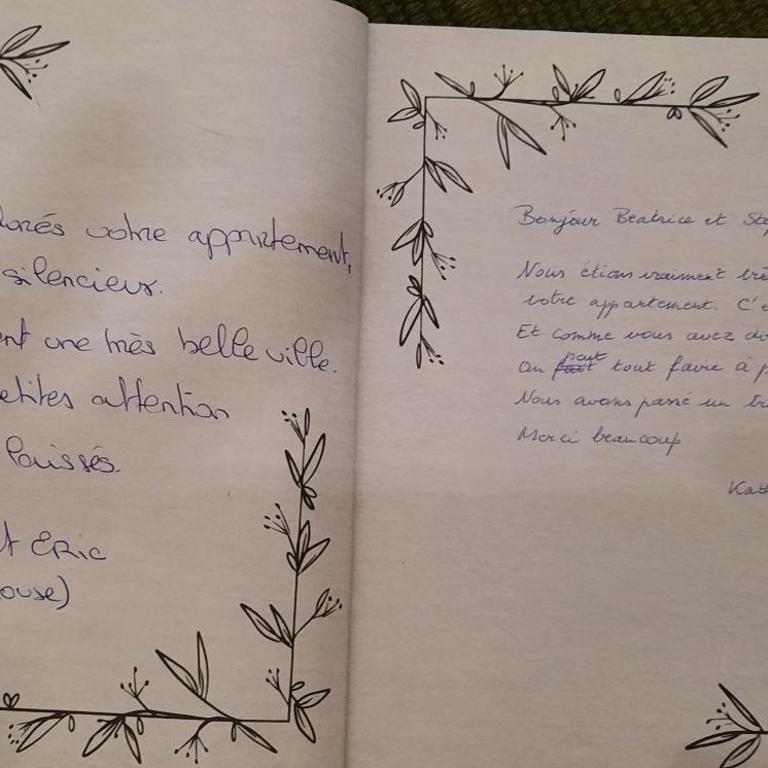 votre appartement,
silencieux.
une très belle ville.
attention
laissés.
et ERic
Bonjour Beatrice et
Nous étions vraiment
votre appartement.
Et comme vous avez
on peut tout faire à
Nous avons passé un
Merci beaucoup